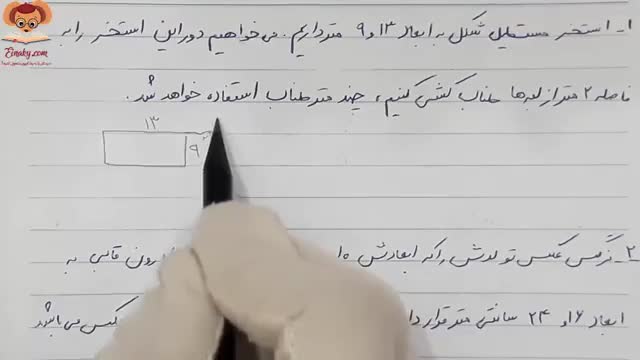 Einaky.com
۱- استخر مستطیل شکل به ابعاد ۱۳ و ۹ متر داریم. می خواهیم دور این استخر را به
فاصله ۲ متر از لبه ها طناب کشی کنیم، چند متر طناب استفاده خواهد شد.
۱۳
۹
۲- نرگس عکس تولدش را که ابعادش ۱۰ درون قابی به
ابعاد ۱۶ و ۲۴ سانتی متر قرار دا عکس می باشد